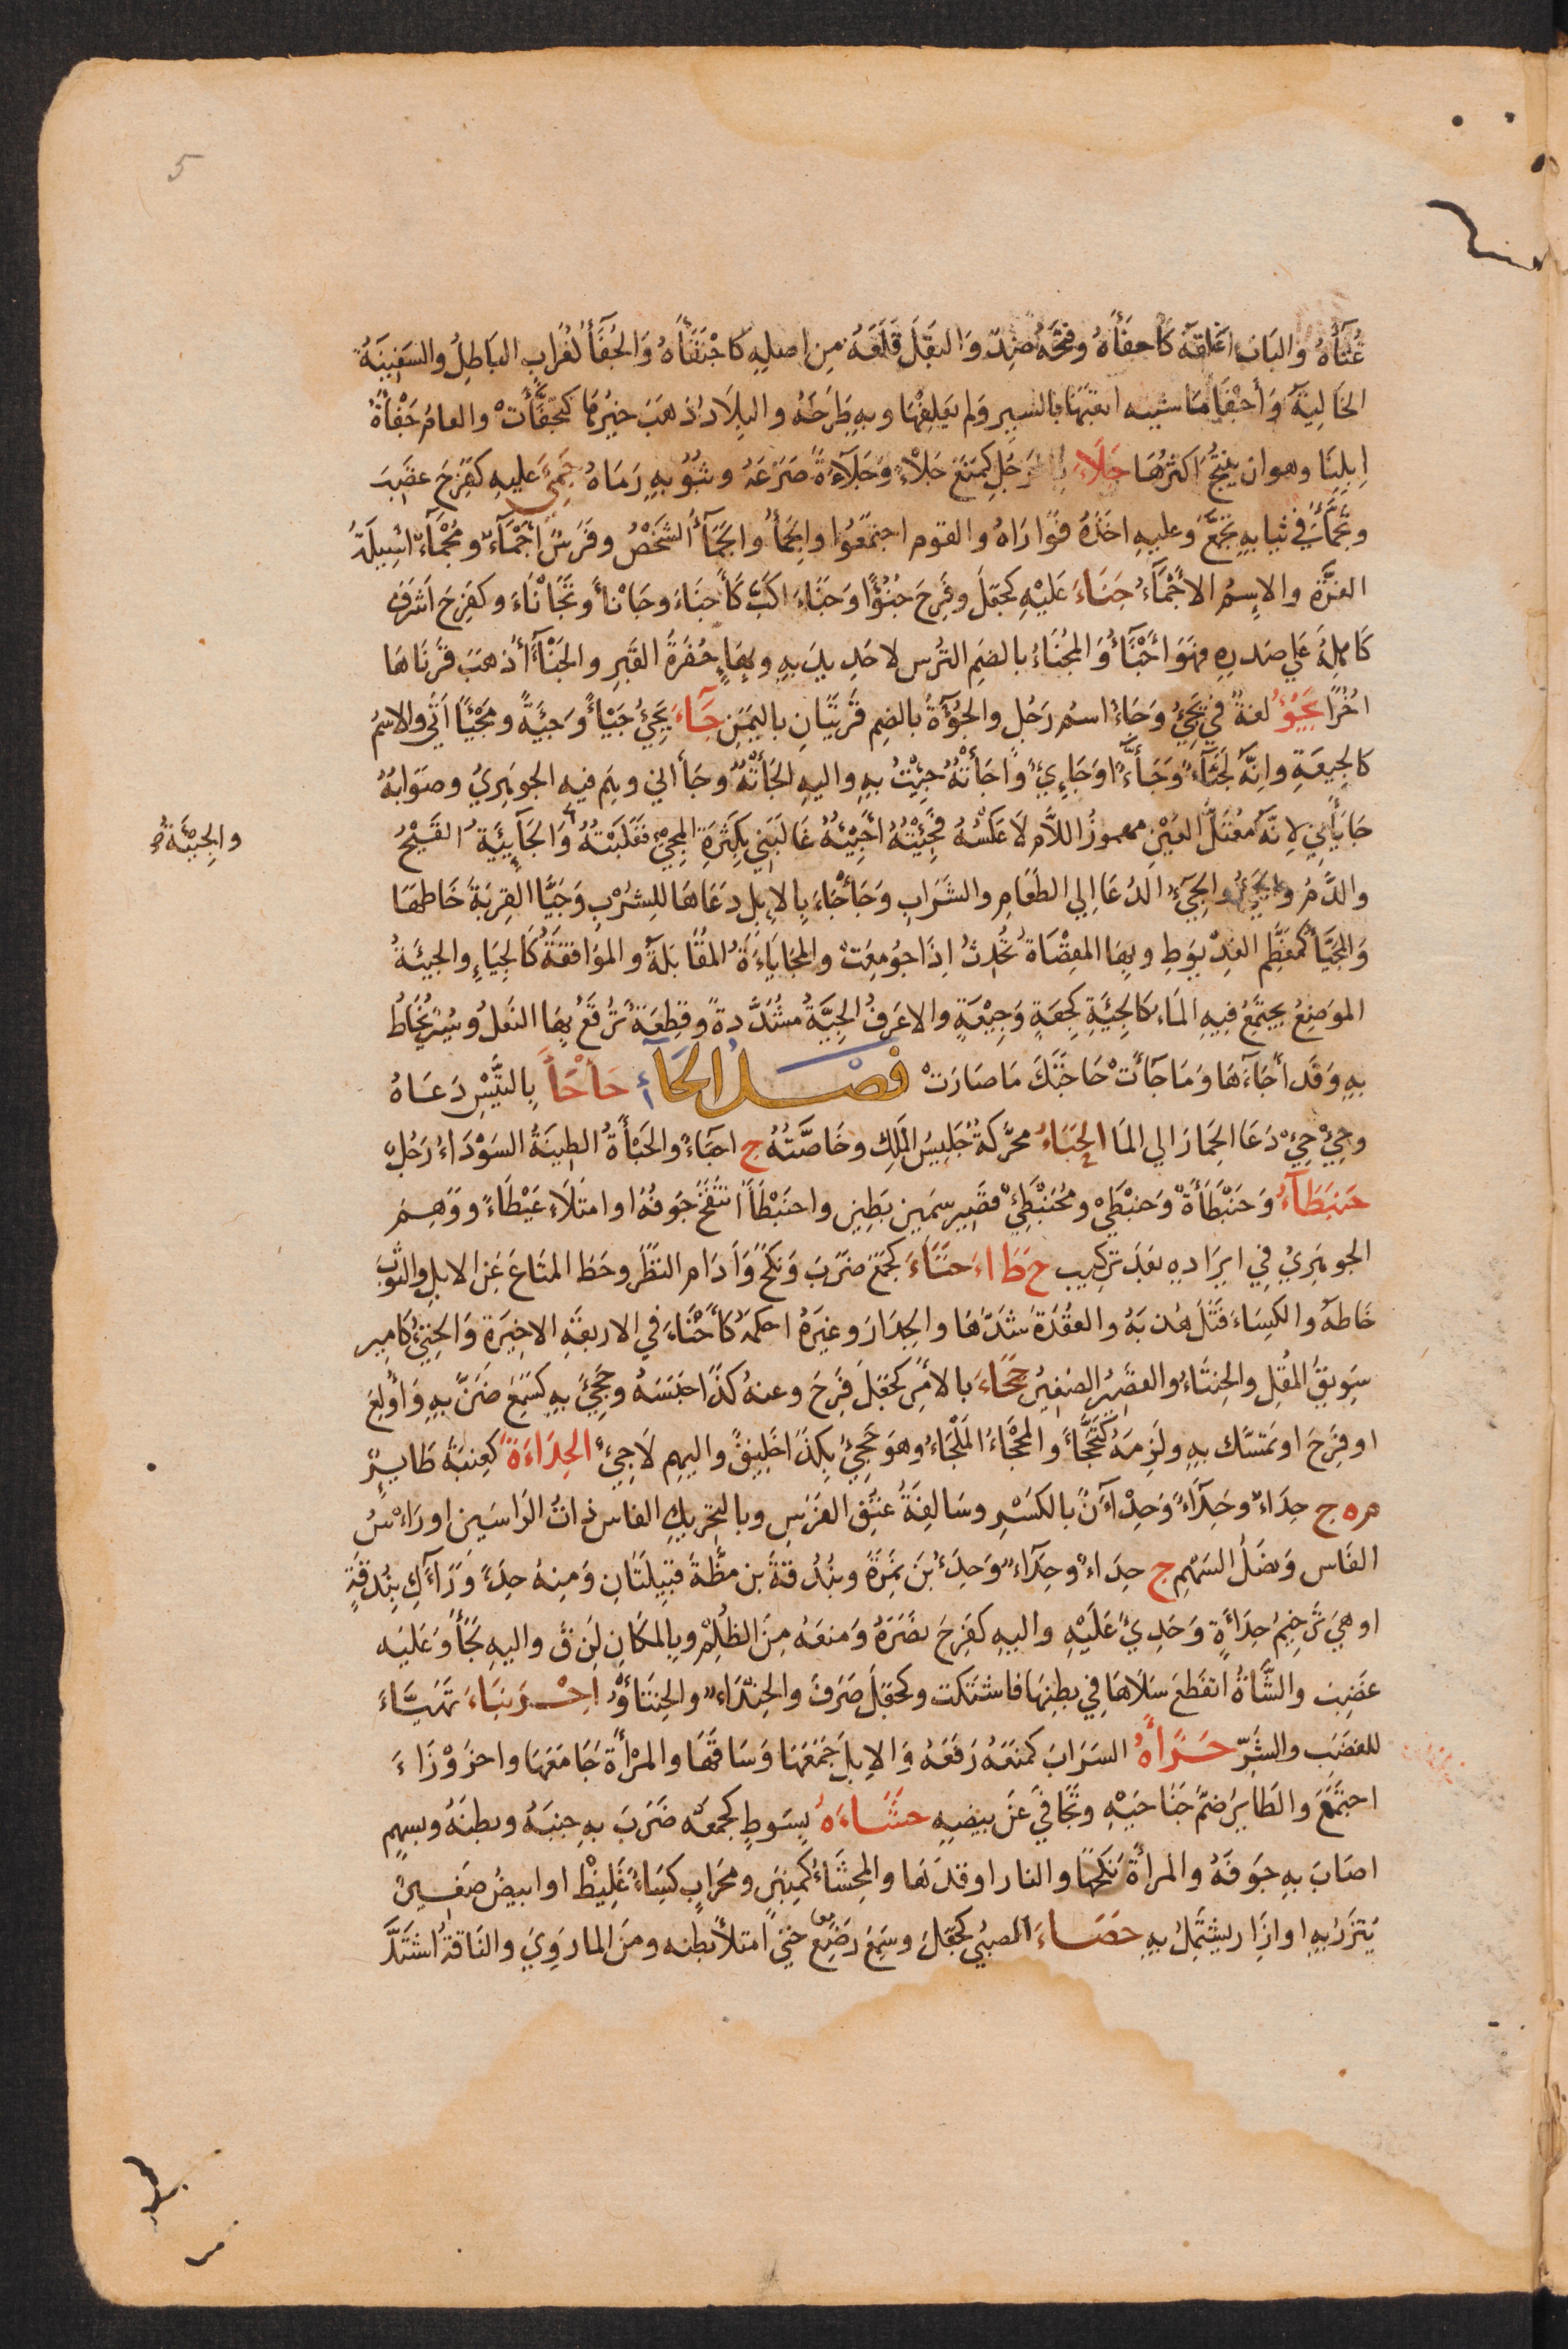 5
غُثَآءَهُ وَالبَابَ اَغْلقَهُ كَاَجفَأهُ وفتحَهُ ضِدّ وَالبَقْلَ قَلَعَهُ مِن اصلِهِ كَاجْتَفَأَهُ وَالجُفَأُ كغُرابٍ البَاطِلُ والسَفِينَةُ
الخَالِيَةُ وَأجْفَأَ مَاشيته اتعَبَهَا بالسيرِ ولم يَعلِفْهَا وبهِ طَرَحَهُ والبِلَادُ ذهَبَ خيرُهَا كتَجفَّأَتْ والعامُ جَفْأَةُ
اِبِلِنَا وهو ان يُنتَجَ اكثرُهَا جَلَأَ بِالرَجُلِ كمَنَعَ جَلْأً وَجَلَآءَةً صَرَعَهُ وبثَوْبِهِ رَمَاهُ جَمِئَ عليهِ كفَرِحَ غضِبَ
وتَجَمَّأَ فِي ثيابهِ تجمَّعَ وعليهِ اخذهُ فوَارَاهُ والقوم اجتمَعُوا والجَمَأُ والجَمَآءُ الشَخْصُ وفَرَسٌ اَجْمَأُ ومُجْمَأٌ اسِيلَةُ
الغُرَّةِ والاِسمُ الاجْمَآءُ جَنَاءَ عَلَيْهِ كجعَلَ وفَرِحَ جُنُوءًا وَجَنَاءَ اكَبَّ كَأَجنَاءَ وجَانَأَ وتَجَانَاءَ وكفَرِحَ اَشرَفَ
كَاهِلُهُ عَلي صَدرِهِ فهوَ اَجْنَأُ وَالمُجْنَاءُ بالضمِ التُرس لا حَديدَ بهِ وبهَاءٍ حُفْرَةُ القَبرِ والجَنْآءُ ذهَبَ قَرنَاهَا
اُخُرًا يَجَوُءُ لغةٌ في يَجِئُ وَجَاءُ اسم رَجُلٍ والجُوْءَةُ بالضمِ قَريَتَانِ باليَمَنِ جَآءَ يَجِئُ جَيْأً وَجَيْئَةً ومَجْيَئًا اَتي والاسمُ
كَالجِيعَةِ وانّهُ لَجَيَّآءٌ وَجَأَّءٌ وَجَاءِيٌّ وأجَأتُهُ جِئْتُ بهِ واليهِ الجَأتُهُ وجَأاني وهِم فيهِ الجوهَرِيُ وصَوَابُهُ
جَايَأنِي لانّهُ مُعْتَلُّ العَيْنِ مهموزُ اللَّام لَا عَكسُهُ فجِئتُهُ اَجِيئُهُ غَالَبَنِي بكَثرَةِ المجِئِ فغَلَبْتُهُ وَالجَآيِئَةُ القَيْحُ
والجِيْئَةُ صح
والدَّمُ والجَئُ والجِئُ الدُعَا الي الطَعَامِ والشَرَابِ وَجَأجَاءَ بالإبلِ دَعَاهَا للِشُرْبِ وَجَيَّا القِرْبَةَ خَاطهَا
وَالمُجَيَّأ كمُعَظَّمٍ العِذْيَوطِ وبهَا المفضَاة تُحْدِثُ اِذَا جُومِعَت والمجَايَاءَةُ المُقَابَلَةُ والموَافقَةُ كَالجِيَاءِ والجيئَةُ
الموَضِعُ يجتَمِعُ فيهِ المَاء كَالجِيَةِ كجِعَةٍ وَجِيْعَةٍ والاعرَفُ الجِيَّةُ مشُدَّدَةً وقِطعَةٌ تُرقَعُ بِهَا النَعلُ وسَيْرٌ يُخَاطُ
بهِ وَقَد أجَآءَهَا وَمَا جَآءَتْ حَاجَتَكَ مَا صَارَتْ فصْـــلُ الحَآءُ حَأحَأَ بِالتَّيْسِ دَعَاهُ
وحِئْ حِئْ دَعَا الحِمَارَ الي المَا الحَبَاءُ محرَّكةٌ جَليسُ المَلِكِ وخَاصَّتُهُ ج احبَاءٌ والحَبْأَةُ الطِينَةُ السَوْدَاءُ رَجُلٌ
حَبَنطَآءٌ وَحَبَنْطَأَةٌ وَحَبَنْطَي ومُحْبَنْطِئٌ قصَيرٌ سَمِينٌ بَطِينٌ واحبَنْطَأَ انتَفَخَ جَوفهُ او امتَلَاءَ غَيْظًا وَوَهِمَ
الجوهَرِيُ فِي ايرَادهِ بعَدَ تَركيبِ ح ط اءَ حَتَاءَ كجَمَعَ ضَرَبَ وَنكَحَ وَأدَامَ النَظَرَ وحَطَ المتَاعَ عَنِ الابِلِ والثَوبَ
خَاطهُ والكِسَاءَ فَتَلَ هُدْبَهُ والعُقْدَةَ شَدَّهَا والجِدَارَ وغيرَهُ احكمهُ كَأَحْتَاءَ في الاربعَةِ الاخِيرَةِ وَالحَتِيُّ كَامِيرٍ
سَويقُ المُقلِ والحِنْتَاءُ القَصيرُ الصَغيرُ حَجَاءَ بالأمرِ كجَعَلَ فَرِحَ وعنهُ كذَا حَبسَهُ وحَجِئَ بهِ كسَمِعَ ضَنَّ بهِ وَأُولِعَ
او فَرِحَ او تمَسَّك بهِ ولَزِمَهُ كتَحَجَّأَ والمَحْجَاءُ المَلجَاءُ وهوَ حَجِئٌ بكذَا خَلِيقٌ واليهم لَاجِئٌ الحِدَاءَةُ كعِنبَةٍ طَايرٌ
م ه ج حِدَاءٌ وحِدَآءٌ وَحِدْآنٌ بالكَسْرِ وسَالِفَةُ عُنُقِ الفَرَسِ وبالتحريكِ الفاس ذَاتُ الرَاسَينِ او رَاءْسُ
الفَاس وَنصلُ السَهْمِ ج حِدَاءٌ وحِدَآءٌ وَحِدَأُ بَن نَمِرَةَ وبُندُقةُ بن مظَّةَ قَبِيلَتَانِ وَمِنهُ حِدَأَ وَرَآءَكِ بُندقَةَ
او هيَ تَرخِيمُ حِدَأَةٍ وَحَدِئَ عَلَيْهِ واليهِ كفَرِحَ نصَرَهُ وَمنَعَهُ مِنَ الظُلْمِ وبالمكَانِ لَزِقَ واليهِ لَجَأَ وعَليه
غضِبَ والشَّاةُ انقَطعَ سَلَاهَا فِي بطنِهَا فاشتكت وكجعَلَ صَرَفَ والحِنْدَاءُ والحِنتَأوُ احْــرَنبَاءَ تَهَيَّاءَ
للغضَبِ والشَرِّ حَــزَأَهُ السَرَابُ كمنَعَهُ رَفَعَهُ وَالإبلَ جَمَعَهَا وَسَاقَهَا والمرأةَ جَامَعَهَا واحزَوْزَاءَ
اجتَمَعَ والطَايرُ ضمَّ جَنَاحَيْهِ وتجَافَي عَن بيضِهِ حشَــاءَهُ بسَوطٍ كجَمعَهُ ضَرَبَ بهِ جنبَهُ وبطنَهُ وبسهمٍ
اصَابَ بهِ جَوفَهُ والمرأةَ نكَحَهَا والنار اوقدَهَا والمِحْشَاءُ كمِنبَرٍ ومحرَابٍ كسَاءٌ غَليظٌ او ابيَضُ صَغيــرٌ
يَتّزرُ بهِ او ازَار يشتَمِلُ بهِ حَصَــاءَ الصبيُ كجعَلَ وسَمِعَ رَضَعَ حتي امتلأَ بطنه ومنَ الما رَوِيَ والنَاقةُ اشتَدَّ